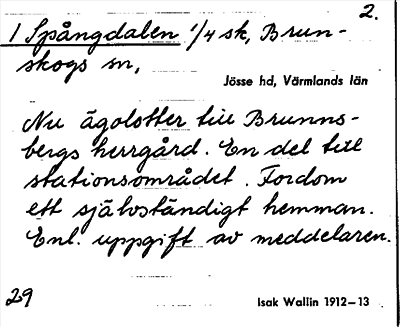 2.
1 Spångdalen 1/4 sk, Brun-
skogs sn,
Jösse hd, Värmlands län
Nu ägolotter till Brunns-
bergs herrgård. En del till
stationsområdet. Fordom
ett självständigt hemman.
Enl. uppgift av meddelaren.
29
Isak Wallin 1912-13